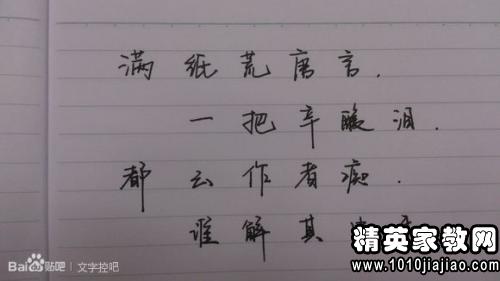 满纸荒唐言.
一把辛酸泪.
都云作者痴.
谁解其
精英家教网
Baidu贴吧 | 文字控吧
www.1010jiajiao.com